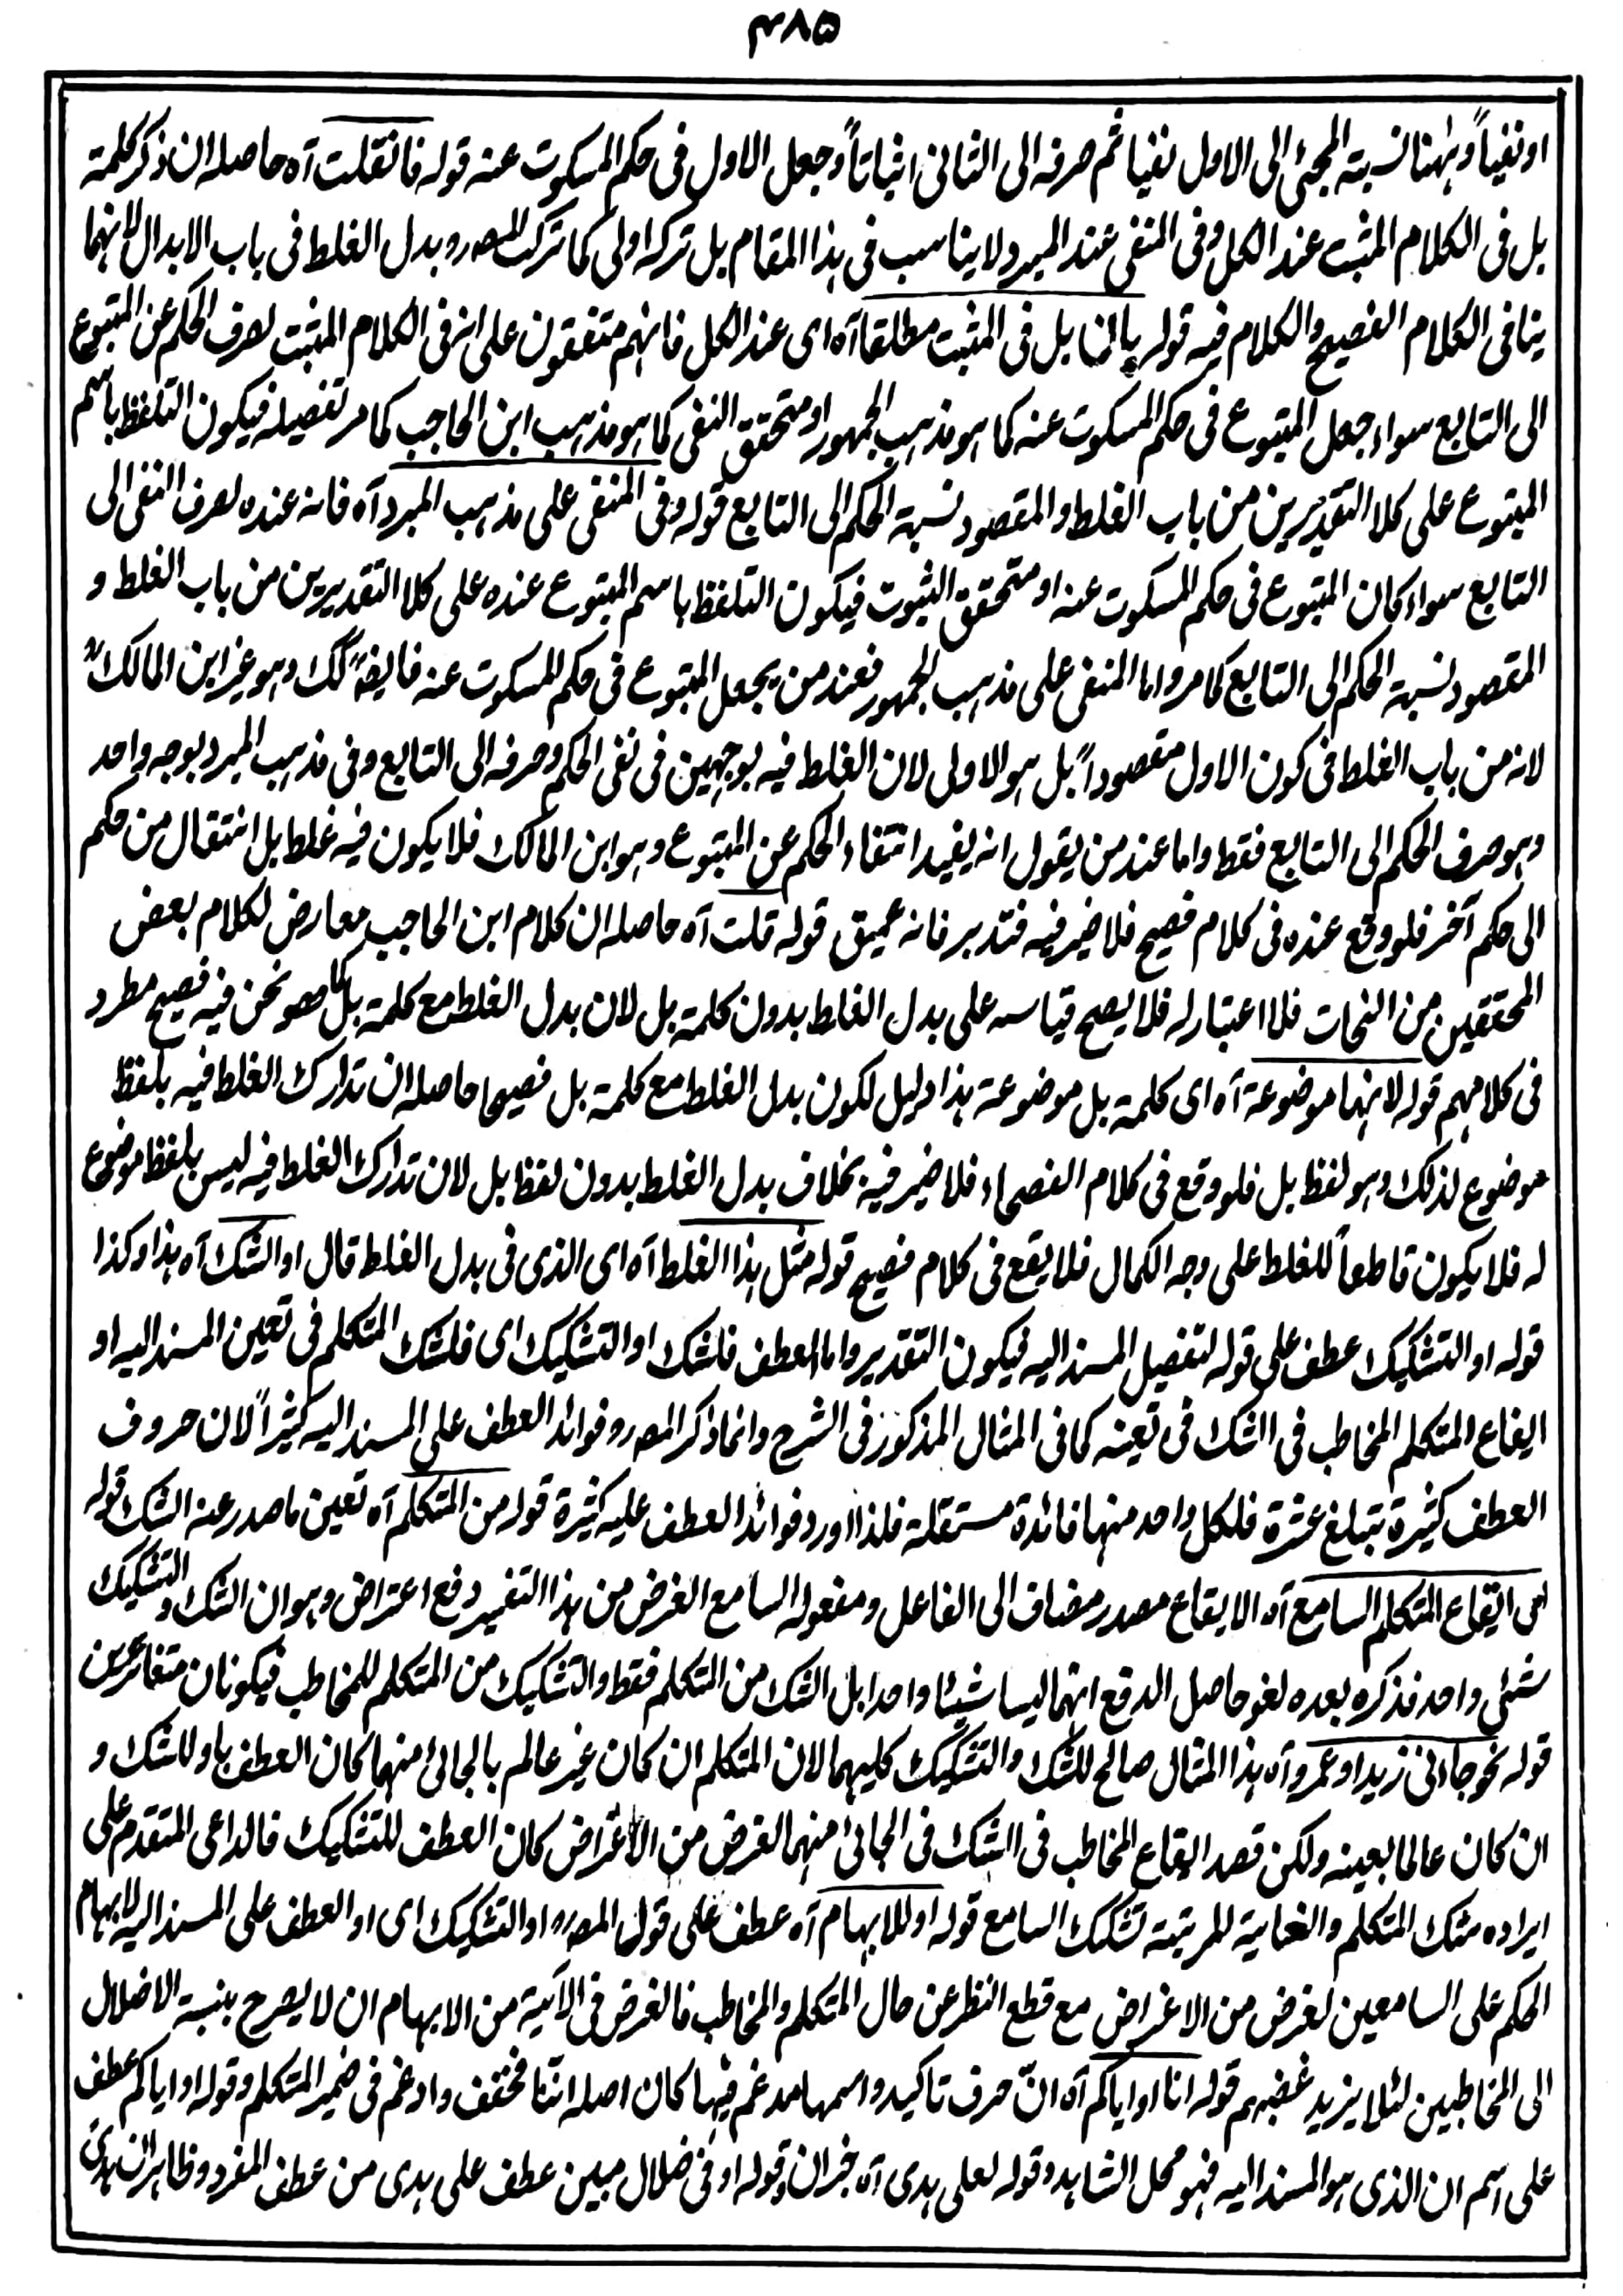 ۴۸۵
او نفیاً وہٰہنا نسبتہ المجئ الی الاول نفیا ثم صرفہ الی الثانی اثباتاً وجعل الاول فی حکم المسکوت عنہ قولہ فانقلت آہ حاصلہ ان ذکر کلمۃ
بل فی الکلام المثبت عند الکل وفی المنفی عند المبرد لا یناسب فی ہذا المقام بل ترکہ اولی کما ترک المصر وبدل الغلط فی باب الابدال لانہما
ینافی الکلام الفصیح والکلام فیہ قولہ بل فی المثبت مطلقا آہ ای عند الکل فانہم متفقون علی انہ فی الکلام المثبت لصرف الحکم عن المتبوع
الی التابع سواء جعل المتبوع فی حکم المسکوت عنہ کما ہو مذہب الجمہور او متحقق النفی کما ہو مذہب ابن الحاجب کما مر تفصیلہ فیکون التلفظ باسم
المتبوع علی کلا التقدیرین من باب الغلط والمقصود نسبۃ الحکم الی التابع قولہ وفی المنفی علی مذہب المبرد آہ فانہ عندہ لصرف النفی الی
التابع سواء کان المتبوع فی حکم المسکوت عنہ او متحقق الثبوت فیکون التلفظ باسم المتبوع عندہ علی کلا التقدیرین من باب الغلط و
المقصود نسبۃ الحکم الی التابع کما مر واما المنفی علی مذہب الجمہور فعند من یجعل المتبوع فی حکم المسکوت عنہ فایضہً کک وہو غیر ابن المالک
لانہ من باب الغلط فی کون الاول مقصوداً بل ہو الاولی لان الغلط فیہ بوجہین فی نفی الحکم وصرفہ الی التابع وفی مذہب المبرد بوجہ واحد
وہو صرف الحکم الی التابع فقط واما عند من یقول انہ یفید انتفاء الحکم عن المتبوع وہو ابن المالک فلا یکون فیہ غلط بل انتقال من حکم
الی حکم آخر فلو وقع عندہ فی کلام فصیح فلا ضیر فیہ فتدبر فانہ عمیق قولہ قلت آہ حاصلہ ان کلام ابن الحاجب معارض لکلام بعض
المحققین من النحات فلا اعتبار لہ فلا یصح قیاسہ علی بدل الغلط بدون کلمۃ بل لان بدل الغلط مع کلمۃ بل کما ہو نحن فیہ فصیح مطرد
فی کلامہم قولہ لانہا موضوعۃ آہ ای کلمۃ بل موضوعۃ ہذا دلیل لکون بدل الغلط مع کلمۃ بل فصیحا حاصلہ ان تدارک الغلط فیہ بلفظ
موضوع لذلک وہو لفظ بل فلو وقع فی کلام الفصحاء فلا ضیر فیہ بخلاف بدل الغلط بدون لفظ بل لان تدارک الغلط فیہ لیس بلفظ موضوع
لہ فلا یکون قاطعاً للغلط علی وجہ الکمال فلا یقع فی کلام فصیح قولہ مثل ہذا الغلط آہ ای الذی فی بدل الغلط قال او الشک آہ ہذا وکذا
قولہ او التشکیک عطف علی قولہ لتفصیل المسند الیہ فیکون التقدیر واما العطف فلشک او التشکیک ای فلشک المتکلم فی تعین المسند الیہ او
ایقاع المتکلم المخاطب فی الشک فی تعینہ کما فی المثال المذکور فی الشرح وانما ذکر المصرو فوائد العطف علی المسند الیہ کثیراً لان حروف
العطف کثیرۃ تبلغ عشرۃ فلکل واحد منہا فائدۃ مستقلۃ فلذا اورد فوائد العطف علیہ کثیرۃ قولہ من المتکلم آہ تعین ما صدر عنہ الشک قولہ
ای ایقاع المتکلم السامع آہ الایقاع مصدر مضاف الی الفاعل ومفعولہ السامع الغرض من ہذا التفسیر دفع اعتراض وہو ان الشک والتشکیک
شئی واحد فذکرہ بعدہ لغو حاصل الدفع انہما لیسا شیئا واحدا بل الشک من المتکلم فقط والتشکیک من المتکلم للمخاطب فیکونان متغائرین
قولہ نحو جاءنی زید او عمرو آہ ہذا المثال صالح للشک والتشکیک کلیہما لان المتکلم ان کان غیر عالم بالجائ منہما کان العطف باو للشک و
ان کان عالما بعینہ ولکن قصد ایقاع المخاطب فی الشک فی الجائ منہما الغرض من الاغراض کان العطف للتشکیک فالداعی المتقدم علی
ایرادہ شک المتکلم والغایۃ المرتبۃ تشکیک السامع قولہ او للابہام آہ عطف علی قول المصرہ او التشکیک ای او العطف علی المسند الیہ لابہام
الحکم علی السامعین لغرض من الاغراض مع قطع النظر عن حال المتکلم والمخاطب فالغرض فی الآیۃ من الابہام ان لا یصرح بنسبۃ الاضلال
الی المخاطبین لئلا یزید غضبہم قولہ انا او ایاکم آہ انّ حرف تاکید واسمہا مدغم فیہا کان اصلہ اننا فخفف وادغم فی ضمیر المتکلم وقولہ او ایاکم عطف
علی اسم ان الذی ہو المسند الیہ فہو محل الشاہد وقولہ لعلی ہدی آہ خبر ان وقولہ او فی ضلال مبین عطف علی ہدی من عطف المفرد وظاہر ان ہدی